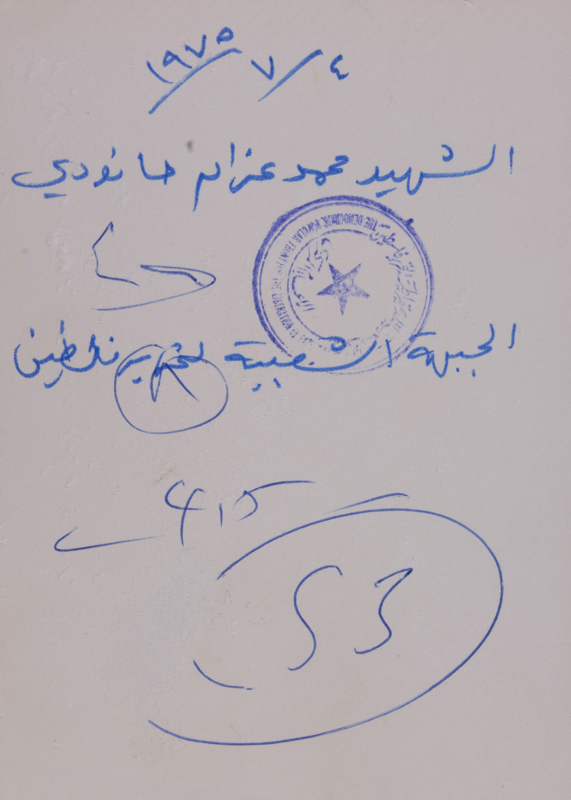 ٤/٧/١٩٧٥
الشهيد محمد عزام حانودي
الجبهة الشعبية لتحرير فلسطين
٨
415
53